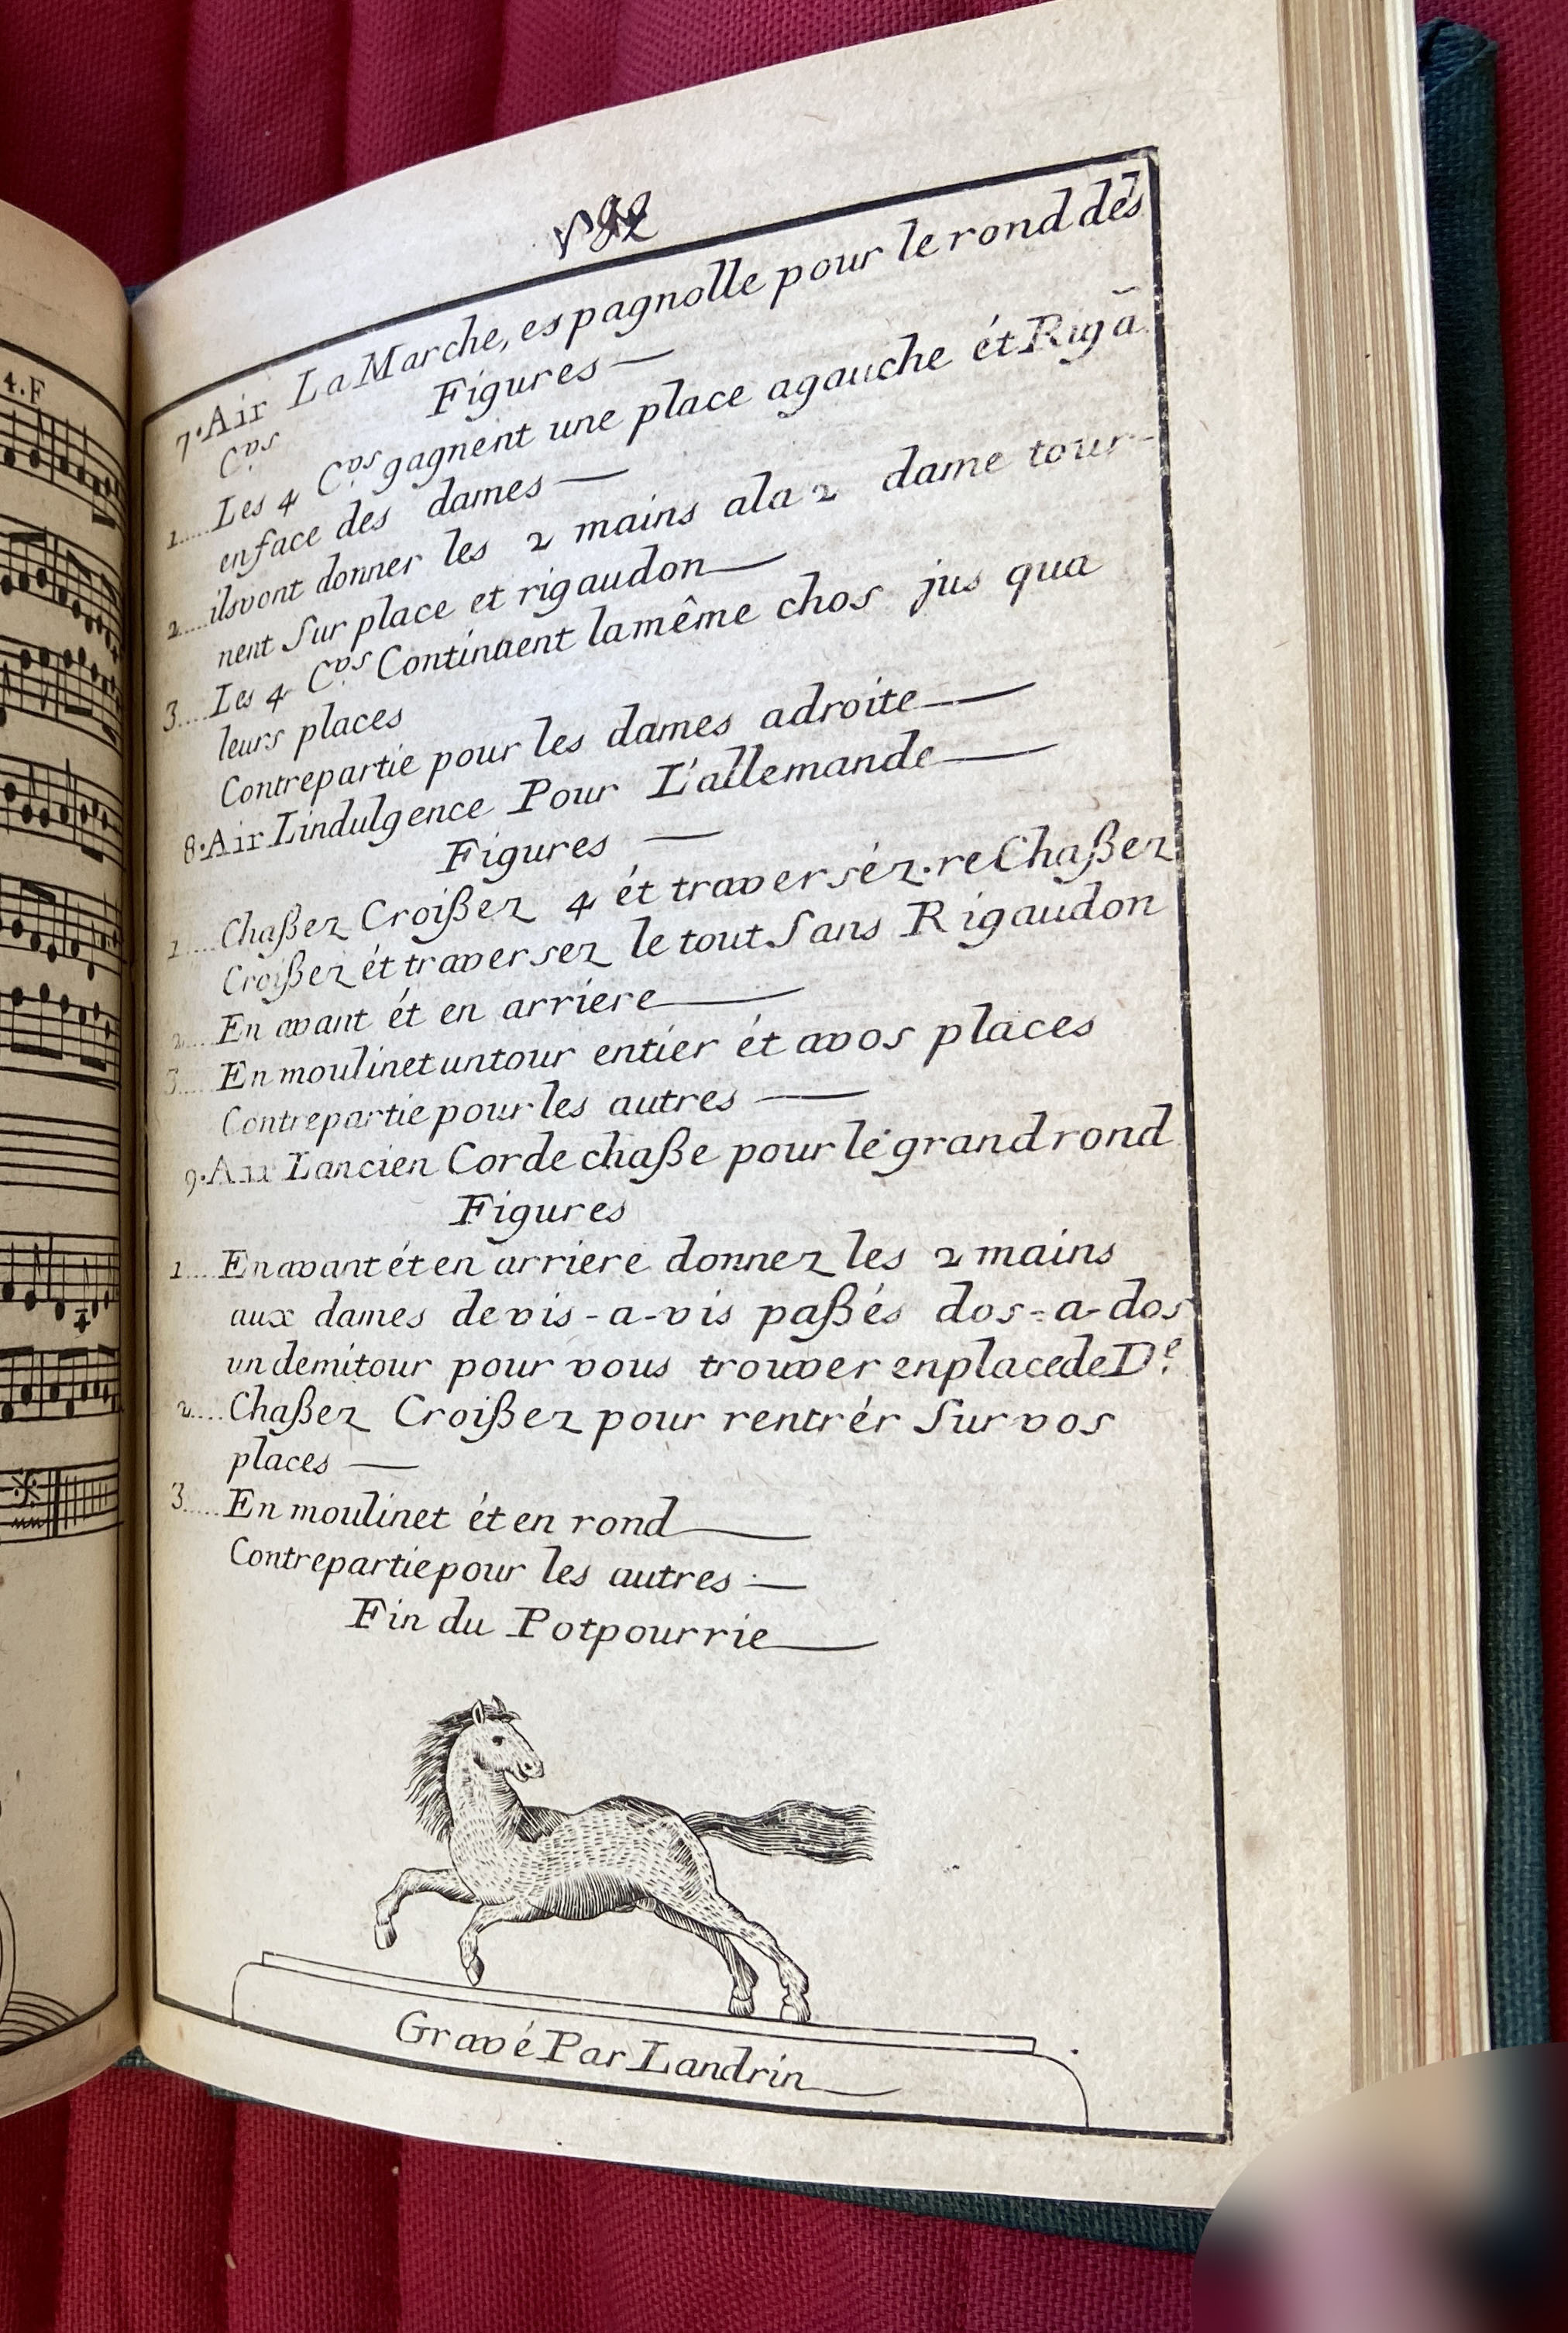 4.F
7. Air La Marche, espagnolle pour le rond des
C.ers
Figures —
1.... Les 4 C.ers gagnent une place agauche ét Rigā
enface des dames —
2.... ilsvont donner les 2 mains ala 2 dame tour-
nent Sur place et rigaudon —
3.... Les 4 C.ers Continuent lamême chos jus qua
leurs places
Contrepartie pour les dames adroite —
8. Air Lindulgence Pour L'allemande —
Figures —
1.... Chaßez Croißez 4 ét traverséz. re Chaßez
Croißez ét traversez le tout Sans Rigaudon
2.... En avant ét en arriere —
3.... En moulinet untour entiér ét avos places
Contrepartie pour les autres —
9. Air Lancien Corde chaße pour lé grand rond
Figures
1.... En avant ét en arriere donnez les 2 mains
aux dames devis-a-vis paßés dos-a-dos
undemitour pour vous trouver enplacedeD.e
2.... Chaßez Croißez pour rentrér Sur vos
places —
3.... En moulinet ét en rond —
Contrepartie pour les autres —
Fin du Potpourrie —
Gravé Par Landrin —